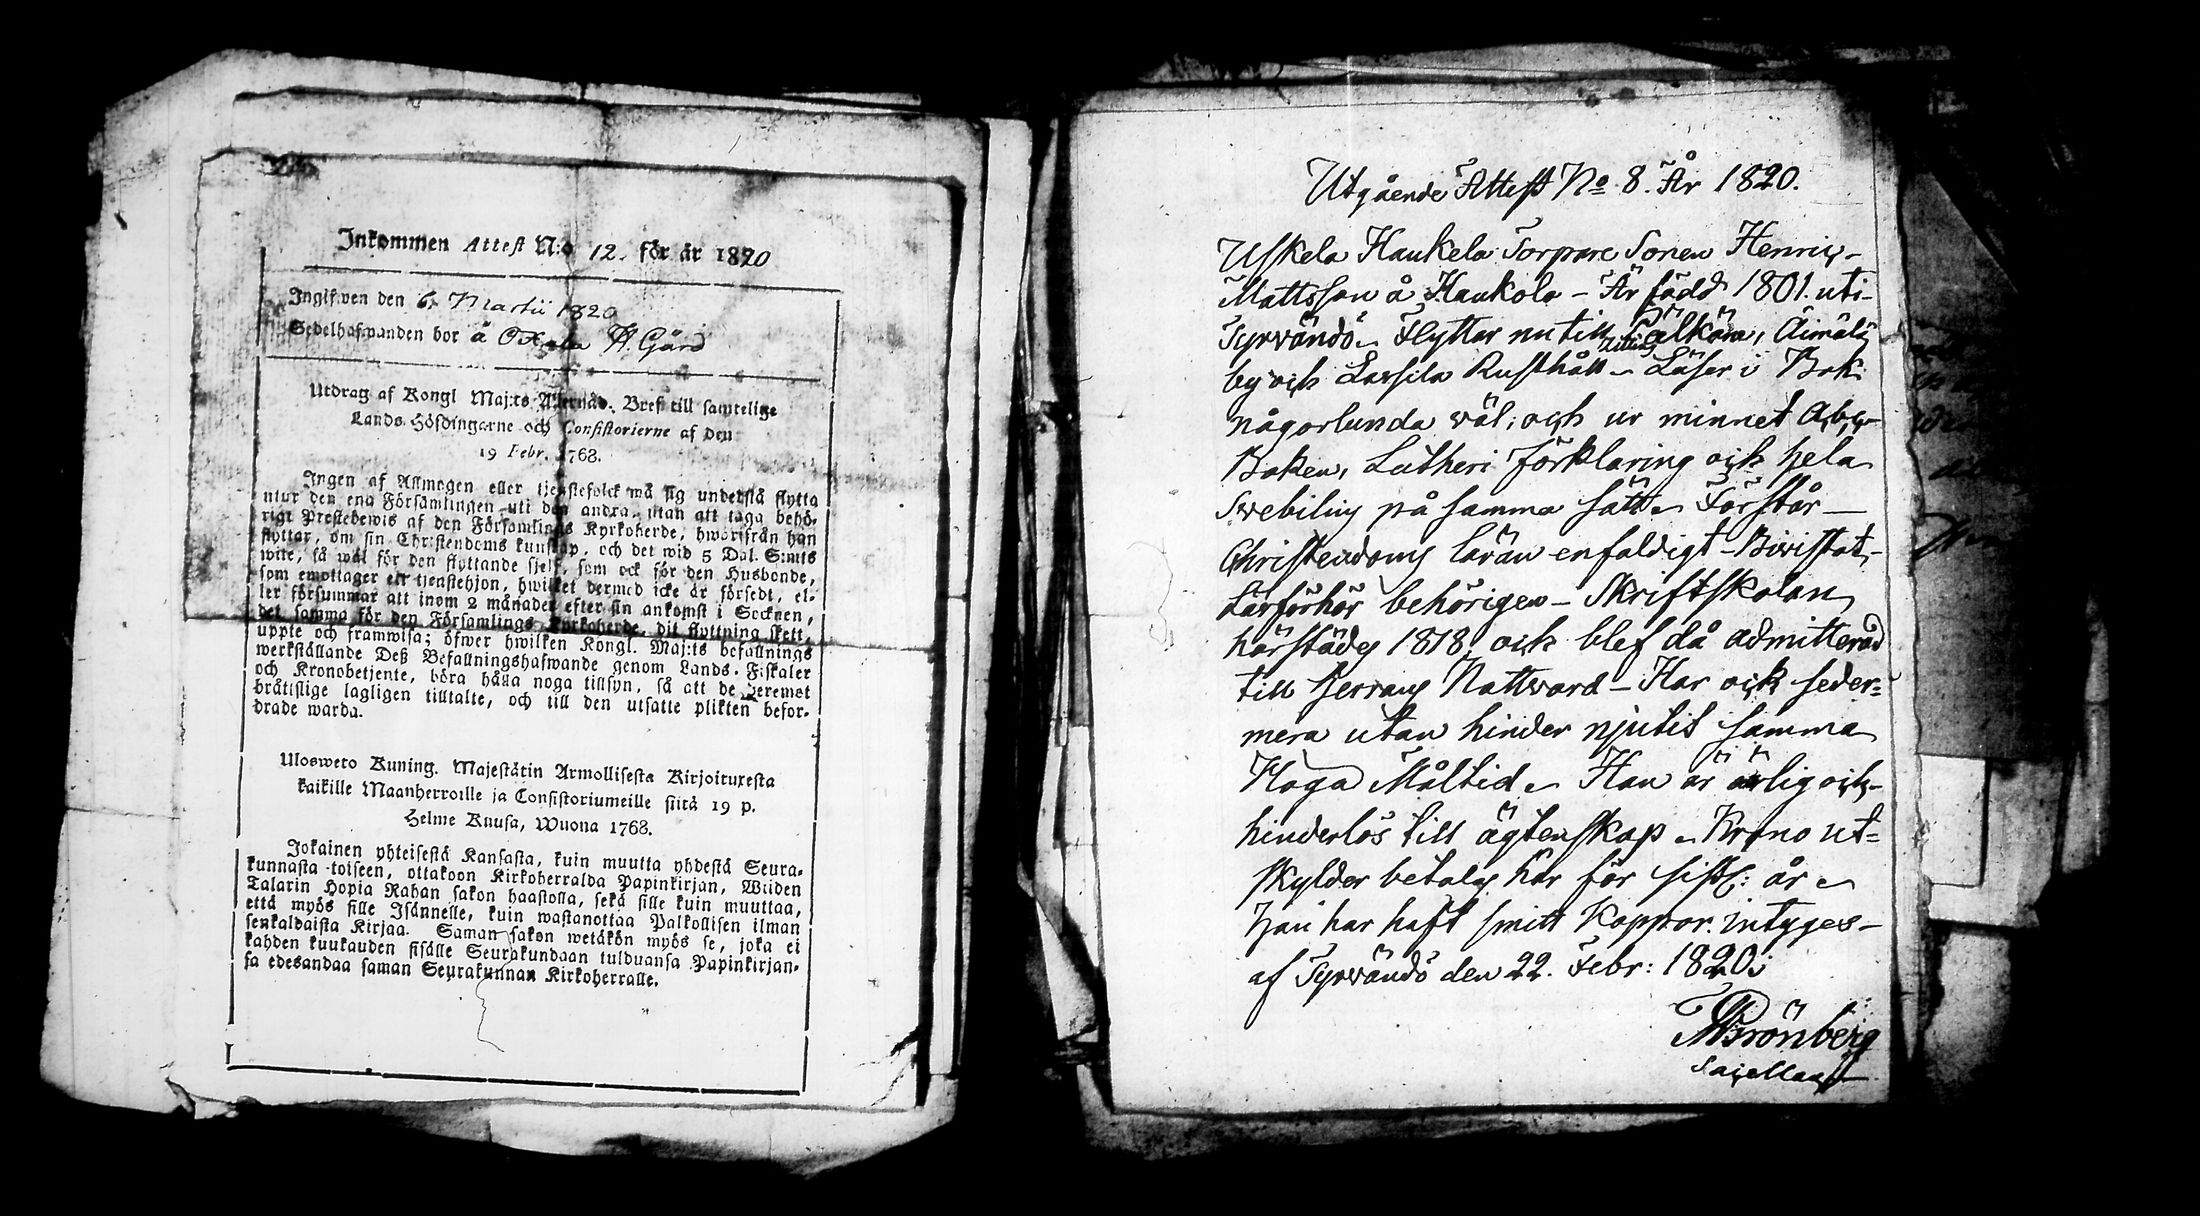 Inkommen Attest N:o 12. för år 1820
Ingifwen den 6. Martii 1820
Sedelhafwanden bor å Gård
Utdrag af Kongl Maj:ts Allernåd. Bref till samtelige
Lands-Höfdingarne och Consistorierne af den
19 Febr. 1768.
Ingen af Allmogen eller tjenstefolck må sig understå flytta
utur den ena Församlingen uti den andra, utan att taga behö-
rigt Prestebewis af den Församlings Kyrkoherde, hwarifrån han
flyttar, om sin Christendoms kunskap, och det wid 5 Dal. Smts
wite, så wäl för den flyttande sjelf, som ock för den Husbonde,
som emottager ett tjenstehjon, hwilket dermed icke är försedt, el-
ler försummar att inom 2 månader efter sin ankomst i Socknen,
det samma för den Församlings Kyrkoherde, dit flyttning skett,
uppte och framwisa; öfwer hwilken Kongl. Maj:ts befallnings
werkställande Deß Befallningshafwande genom Lands-Fiskaler
och Kronobetjente, böra hålla noga tillsyn, så att de deremot
bråtislige lagligen tilltalte, och till den utsatte plikten befor-
drade warda.
Ulosweto Kuning. Majestätin Armollisesta Kirjoituxesta
kaikille Maanherroille ja Consistoriumeille siitä 19 p.
Helme Kuusa, Wuona 1768.
Jokainen yhteisestä Kansasta, kuin muutta yhdestä Seura-
kunnasta toiseen, ottakoon Kirkoherralda Papinkirjan, Wiiden
Talarin Hopia Rahan sakon haastolla, sekä sille kuin muuttaa,
että myös sille Isännelle, kuin wastanottaa Palkollisen ilman
senkaldaista Kirjaa. Saman sakon wetäkön myös se, joka ei
kahden kuukauden sisälle Seurakundaan tulduansa Papinkirjan-
sa edesandaa saman Seurakunnan Kirkoherralle.
Utgående Attest No 8. År 1820.
Uskela Haukela Torpare Sonen Henric
Mattsson å Haukola – Är född 1801. uti
Tyrvändö. Flyttar nu till Pälkäne, Äimälä
by och Larsila Rusthåll – Läser i Bok
någorlunda wäl; och ur minnet Abc-
Boken, Lutheri förklaring och hela
Swebilius på samma sätt – Förstår
Christendoms läran enfaldigt – Biwistat
Läsförhör behörigen – Skriftskolan
härstädes 1818, och blef då admitterad
till Herrans Nattvard – Har ock seder-
mera utan hinder njutit samma
Höga Måltid – Han är ärlig och
hinderlös till ägtenskap – Krono ut-
skylder betalas här för sistl: år –
Han har haft smitt Koppor. intyges
af Tyrvändö den 22. Febr: 1820.
Grönberg
Sacellan